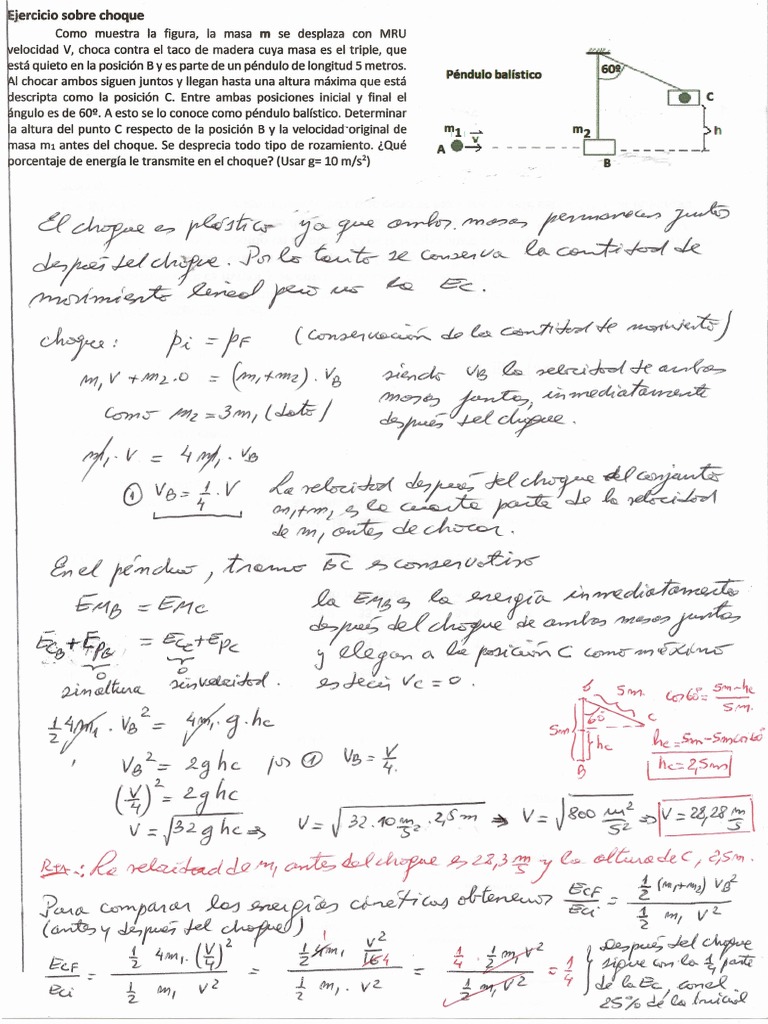 Ejercicio sobre choque
Como muestra la figura, la masa m se desplaza con MRU
velocidad V, choca contra el taco de madera cuya masa es el triple, que
está quieto en la posición B y es parte de un péndulo de longitud 5 metros.
Al chocar ambos siguen juntos y llegan hasta una altura máxima que está
descripta como la posición C. Entre ambas posiciones inicial y final el
ángulo es de 60º. A esto se lo conoce como péndulo balístico. Determinar
la altura del punto C respecto de la posición B y la velocidad original de
masa m₁ antes del choque. Se desprecia todo tipo de rozamiento. ¿Qué
porcentaje de energía le transmite en el choque? (Usar g= 10 m/s²)
Péndulo balístico
60º
C
m₁ v
A
m₂
B
h
El choque es plástico ya que ambas masas permanecen juntas
después del choque. Por lo tanto se conserva la cantidad de
movimiento lineal pero no la Ec.
choque: pi = pF (conservación de la cantidad de movimiento)
m₁V + m₂.0 = (m₁+m₂).VB siendo VB la velocidad de ambas
masas juntas, inmediatamente
como m₂ = 3m₁ (dato) después del choque.
m₁.V = 4m₁.VB
① VB = 1/4 . V La velocidad después del choque del conjunto
m₁+m₂ es la cuarta parte de la velocidad
de m₁ antes de chocar.
En el péndulo, tramo BC es conservativo
EMB = EMC la EMB es la energía inmediatamente
después del choque de ambas masas juntas
EcB + EpB = Ecc + Epc y llegan a la posición C como máximo
0 0
sin altura sin velocidad. es decir Vc = 0.
1/2 4m₁ . VB² = 4m₁ . g . hc
VB² = 2ghc por ① VB = V/4.
(V/4)² = 2ghc
5m.
5m
60º
C
hc
B
cos60º = 5m-hc/5m.
hc = 5m - 5m cos60º
hc = 2,5m
V = √32ghc ⇒ V = √32.10 m/s² . 2,5m ⇒ V = √800 m²/s² ⇒ V = 28,28 m/s
Rta.: La velocidad de m₁ antes del choque es 28,3 m/s y la altura de C, 2,5m.
Para comparar las energías cinéticas obtenemos ECF/ECi = 1/2 (m₁+m₂) VB² / 1/2 m₁ V²
(antes y después del choque)
ECF/ECi = 1/2 4m₁ . (V/4)² / 1/2 m₁ V² = 1/2 4m₁ V²/16 4 / 1/2 m₁ . V² = 1/4 . 1/2 m₁V² / 1/2 m₁V² = 1/4
Después del choque
sigue con la 1/4 parte
de la Ec, con el
25% de la inicial